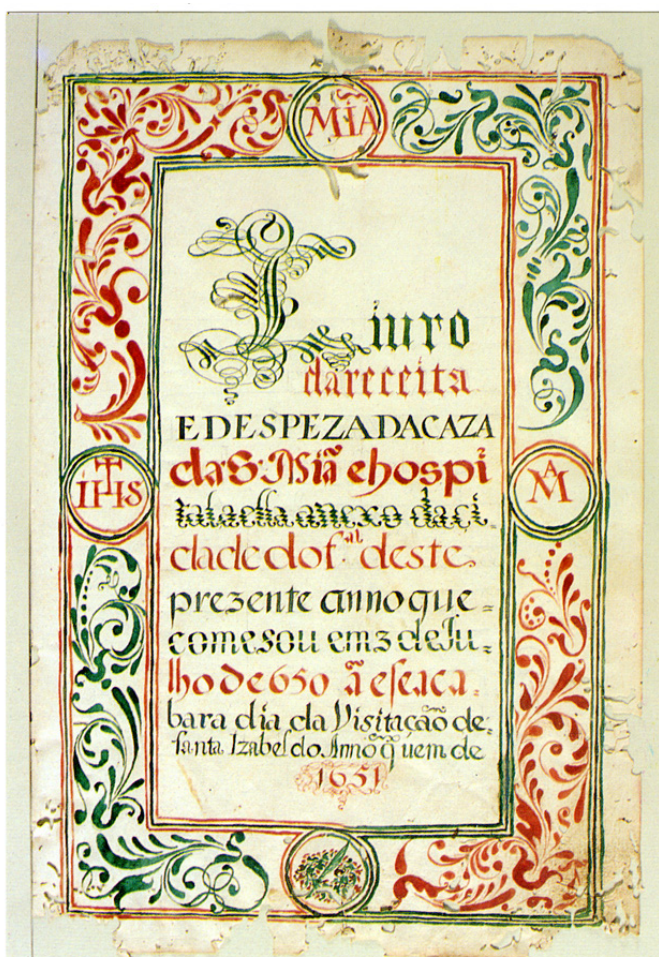 MIA
Liuro
da receita
E DESPEZA DA CAZA
da S. Mia e hospi
tal a ella anexo da ci-
dade do f.al deste
prezente anno que =
comesou em 3 de Ju =
lho de 650 ã e se aca -
bara dia da Visitação de
santa Izabel do Anno q̃ uem de
1651
IHS
MA